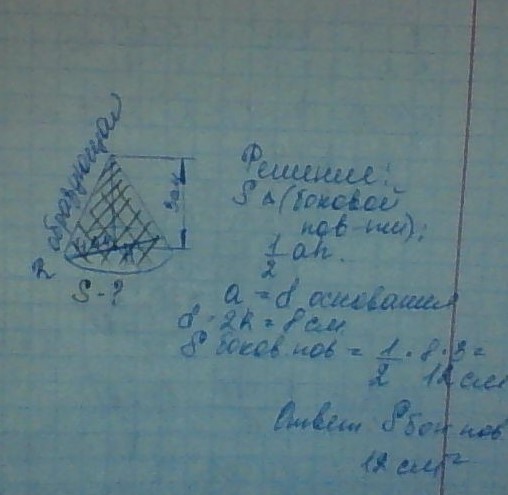 образующая
3см
S-?
Решение:
S△(боковой
пов-ти):
1/2 ah.
a = d основания
d = 2R = 8 см
S боков пов = 1/2 · 8 · 3 =
12 см
Ответ Sбок пов
12 см²